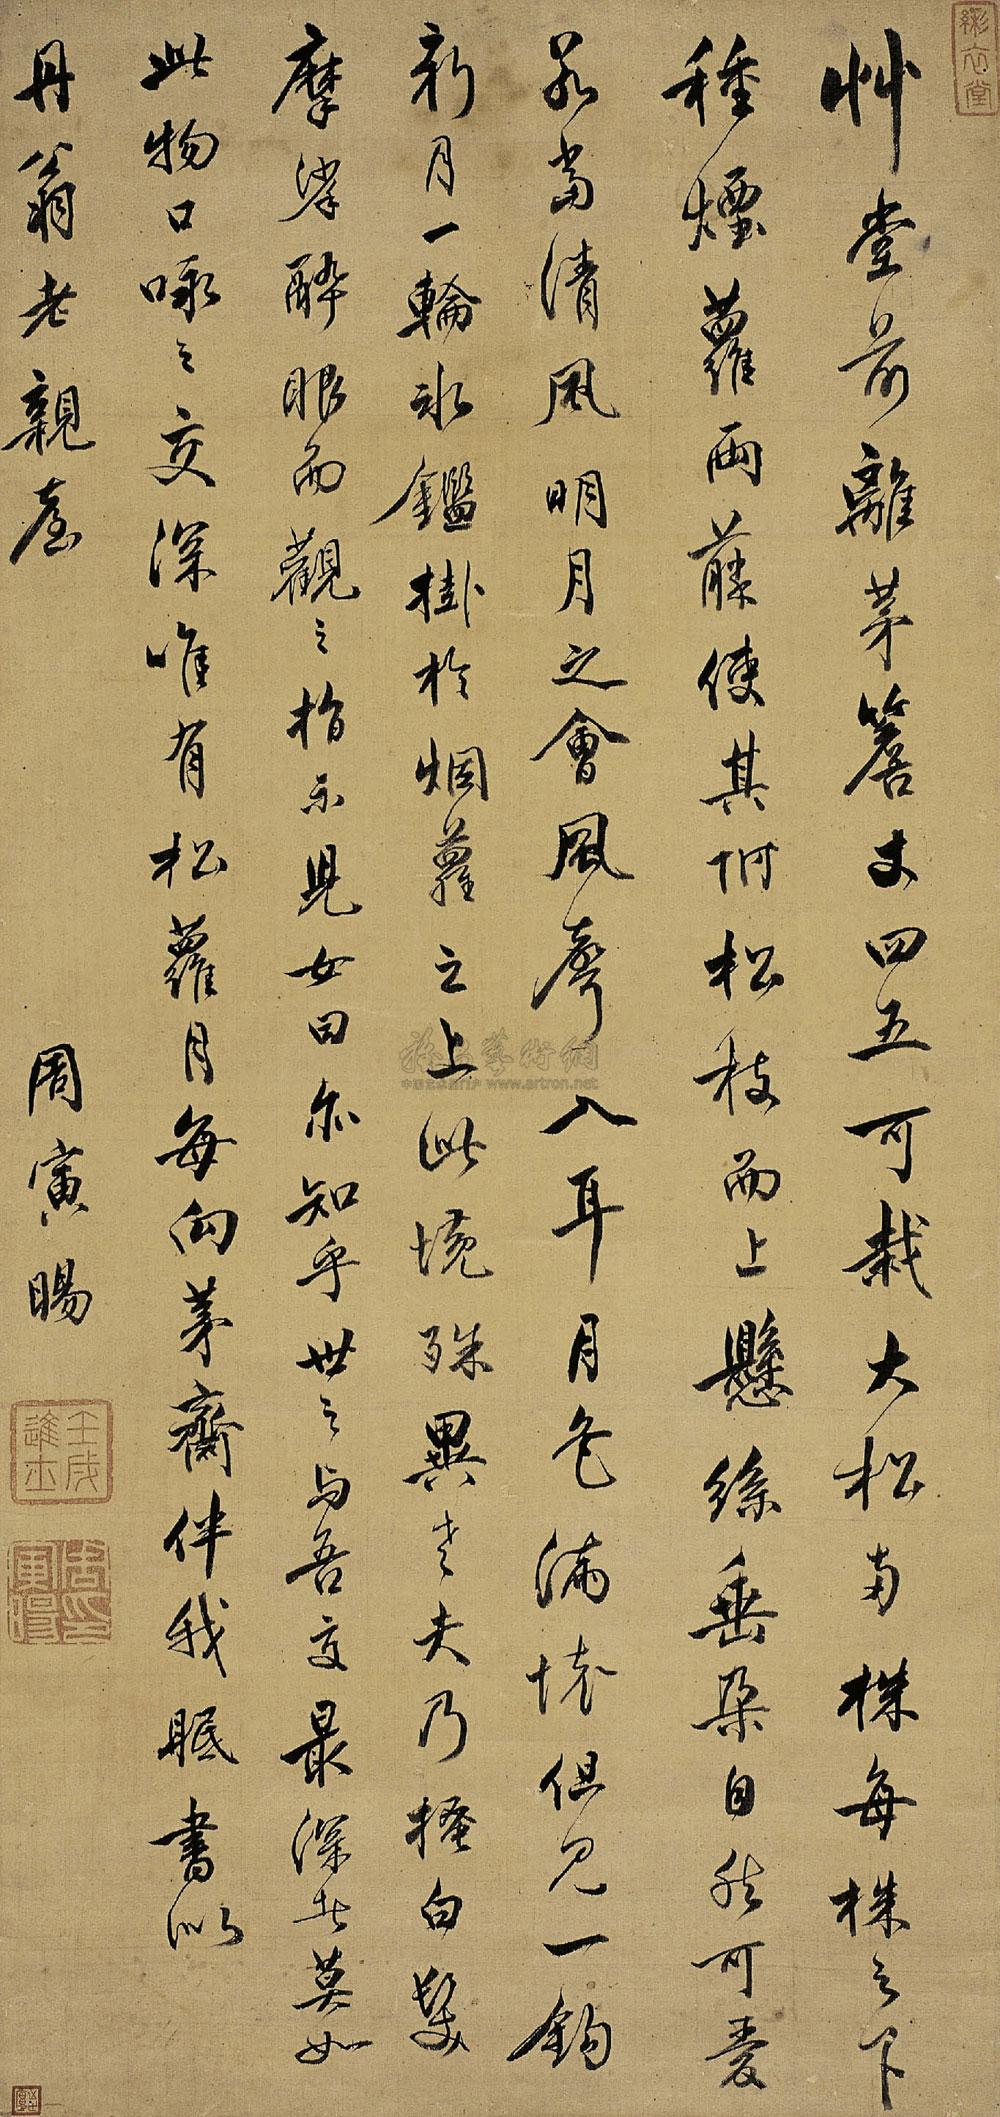 艸堂前離茅簷丈四五可栽大松两株每株之下
種煙蘿兩藤使其附松枝而上懸絲垂朵自然可愛
若當清風明月之會風聲入耳月色滿懷但見一鈎
新月一輪氷鑑掛於烟蘿之上此境殊異老夫乃搔白髮
摩挲醉眼而觀之指示兒女曰尔知乎世之与吾交最深者莫如
此物口咏之交深唯有松蘿月每向茅齋伴我眠書似
丹翁老親臺
周寅暘
彩衣堂
壬戌進士
www.artron.net